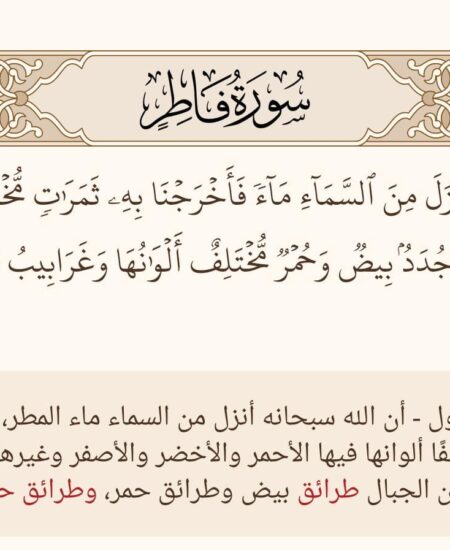 سُورَةُ فَاطِرٍ
زَلَ مِنَ ٱلسَّمَآءِ مَآءٗ فَأَخۡرَجۡنَا بِهِۦ ثَمَرَٰتٖ مُّخۡ
جُدَدُۢ بِيضٞ وَحُمۡرٞ مُّخۡتَلِفٌ أَلۡوَٰنُهَا وَغَرَابِيبُ
ول - أن الله سبحانه أنزل من السماء ماء المطر،
فًا ألوانها فيها الأحمر والأخضر والأصفر وغيرها
ن الجبال طرائق بيض وطرائق حمر، وطرائق ح